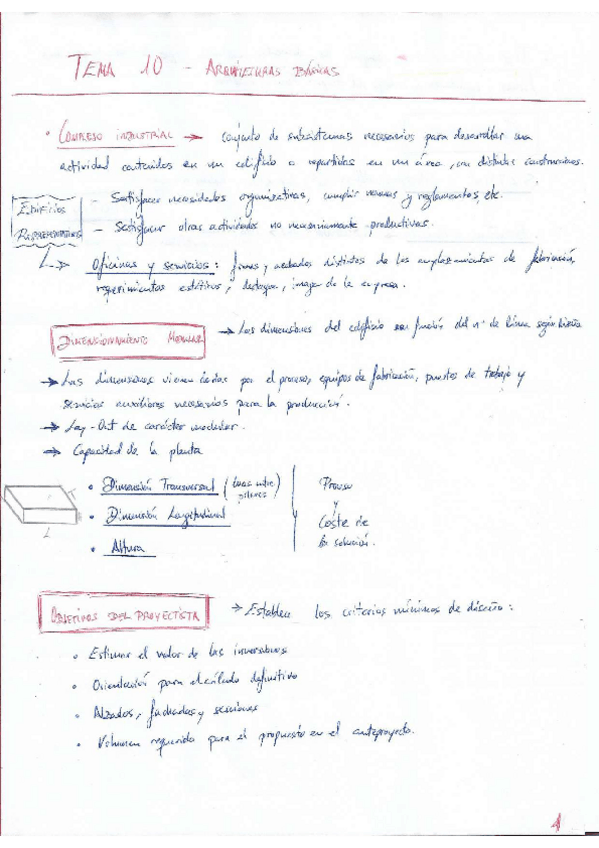 TEMA 10 - ARQUITECTURAS BÁSICAS
• COMPLEJO INDUSTRIAL → Conjunto de subsistemas necesarios para desarrollar una
actividad contenidos en un edificio o repartidos en un área, con distintas construcciones.
EDIFICIOS
REPRESENTATIVOS
- Satisfacer necesidades organizativas, cumplir normas y reglamentos, etc.
- Satisfacer otras actividades no necesariamente productivas.
↳ Oficinas y servicios: formas y acabados distintos de los emplazamientos de fabricación,
requerimientos estéticos, imagen de la empresa.
DIMENSIONAMIENTO MODULAR
→ Las dimensiones del edificio son función del nº de línea según
→ Las dimensiones vienen dadas por el proceso, equipos de fabricación, puestos de trabajo y
servicios auxiliares necesarios para la producción.
→ Lay-Out de carácter modular.
→ Capacidad de la planta
• Dimensión Transversal (luces entre pilares)
• Dimensión Longitudinal
• Altura
Proceso
y
Coste de
la solución.
L
OBJETIVOS DEL PROYECTISTA
→ Establecer los criterios mínimos de diseño:
• Estimar el valor de las inversiones
• Orientación para el cálculo definitivo
• Alzados, fachadas y secciones
• Volumen requerido para el propuesto en el anteproyecto.
1